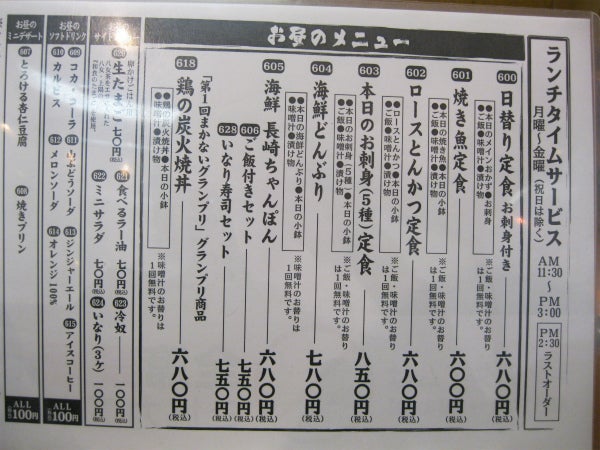 ランチタイムサービス
月曜〜金曜(祝日は除く)
AM 11:30 〜 PM 3:00
PM 2:30 ラストオーダー
お昼のメニュー
600 日替り定食 お刺身付き 六八〇円(税込)
●本日のメインおかず●お刺身
●ご飯●味噌汁●漬け物
601 焼き魚定食 六〇〇円(税込)
●本日の焼き魚●本日の小鉢
●ご飯●味噌汁●漬け物
※ご飯・味噌汁のお替り
は1回無料です。
602 ロースとんかつ定食 六八〇円(税込)
●ロースとんかつ●本日の小鉢
●ご飯●味噌汁●漬け物
※ご飯・味噌汁のお替り
は1回無料です。
603 本日のお刺身(5種)定食 八五〇円(税込)
●本日のお刺身(5種)●本日の小鉢
●ご飯●味噌汁●漬け物
※ご飯・味噌汁のお替り
は1回無料です。
604 海鮮どんぶり 七八〇円(税込)
●本日の海鮮どんぶり●本日の小鉢
●味噌汁●漬け物
※味噌汁のお替りは
1回無料です。
605 海鮮 長崎ちゃんぽん 六八〇円(税込)
606 ご飯付きセット 七五〇円(税込)
628 いなり寿司セット 七五〇円(税込)
「第1回まかないグランプリ」グランプリ商品
618 鶏の炭火焼丼 六八〇円(税込)
●鶏の炭火焼丼●本日の小鉢
●味噌汁●漬け物
※味噌汁のお替りは
1回無料です。
お昼の
サイド
620 生たまご 七〇円(税込)
621 食べるラー油 七〇円(税込)
622 ミニサラダ 七〇円(税込)
623 冷奴 一〇〇円(税込)
624 いなり(3ヶ) 一〇〇円(税込)
お昼の
ソフトドリンク
609 コカ・コーラ
610 カルピス
611 山ぶどうソーダ
612 メロンソーダ
613 ジンジャーエール
614 オレンジ100%
615 アイスコーヒー
ALL
100円
お昼の
ミニデザート
607 とろける杏仁豆腐
608 焼きプリン
ALL
100円